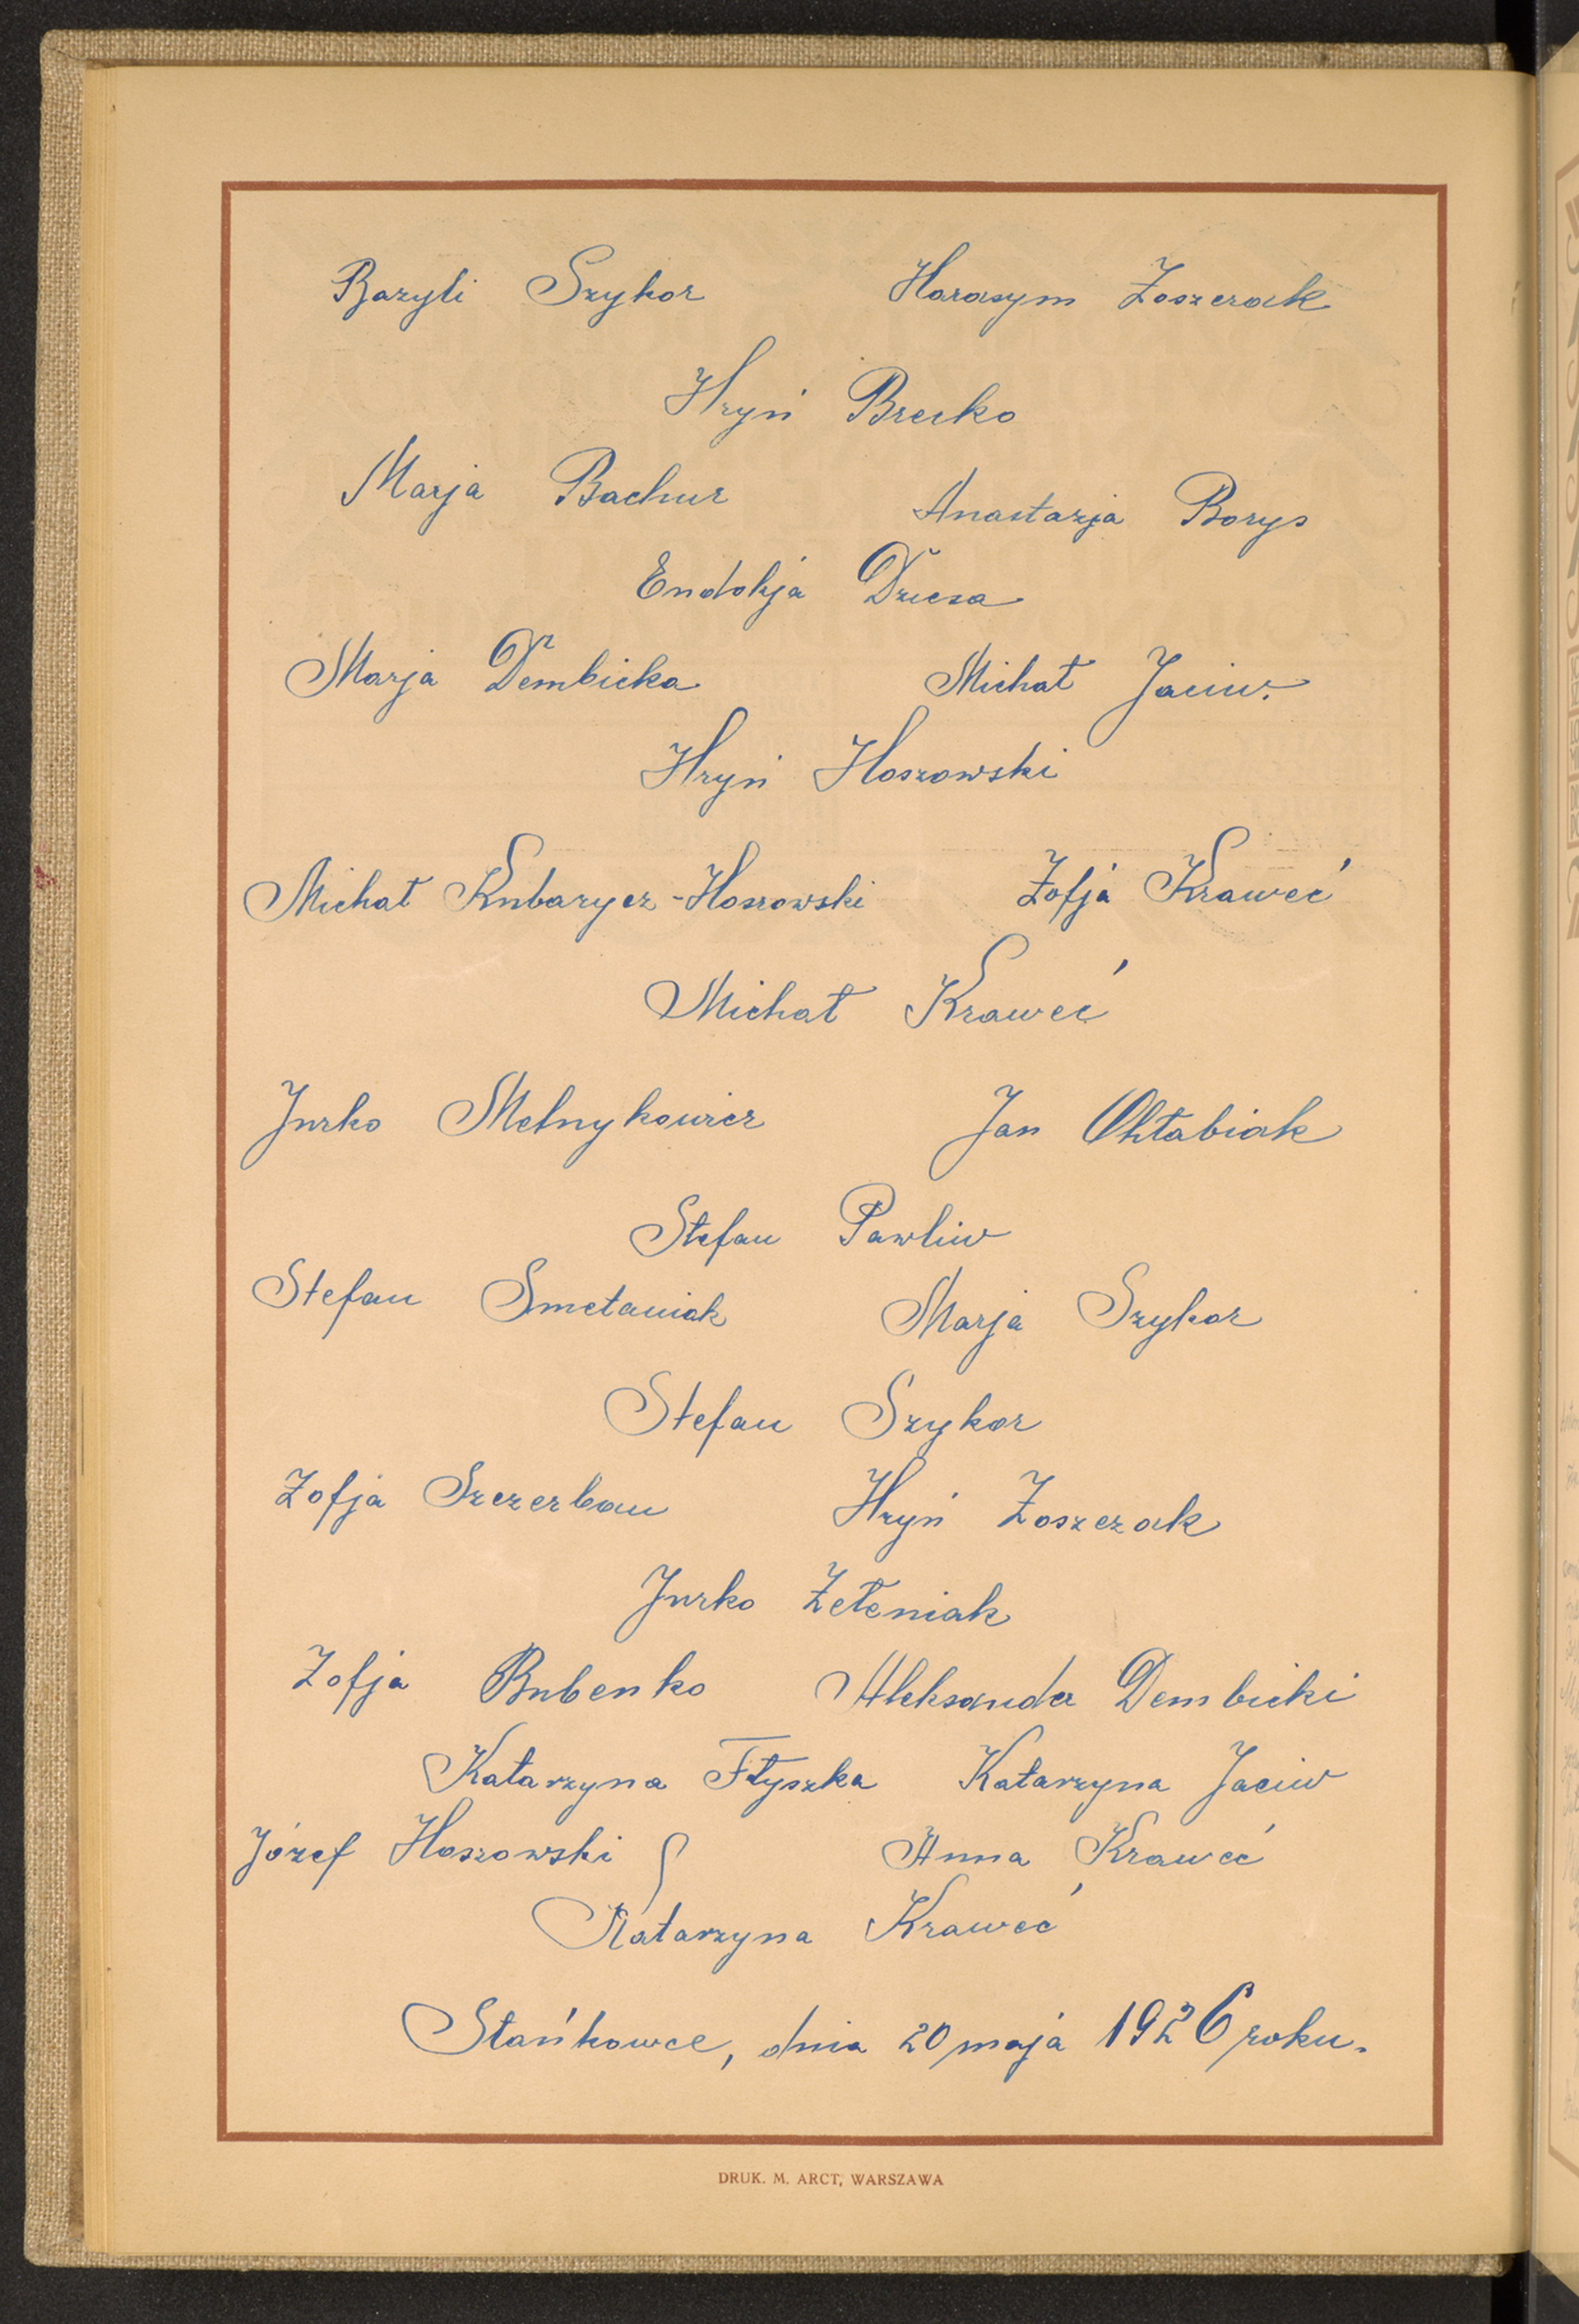 Bazyli Szykor Harasym Zoszczak
Hryń Brećko
Marja Bachur Anastazja Borys
Eudokja Dzicsa
Marja Dembicka Michał Jaciw.
Hryń Hoszowski
Michał Kubarycz-Hoszowski Zofja Kraweć
Michał Kraweć
Jurko Melnykowicz Jan Ohłabiak
Stefan Pawliw
Stefan Smetaniak Marja Szykor
Stefan Szykor
Zofja Szczerban Hryń Zoszczak
Jurko Zełeniak
Zofja Bubenko Aleksander Dembicki
Katarzyna Fłyszka Katarzyna Jaciw
Józef Hoszowski Anna Kraweć
Katarzyna Kraweć
Stańkowce, dnia 20 maja 1926 roku.
DRUK. M. ARCT, WARSZAWA